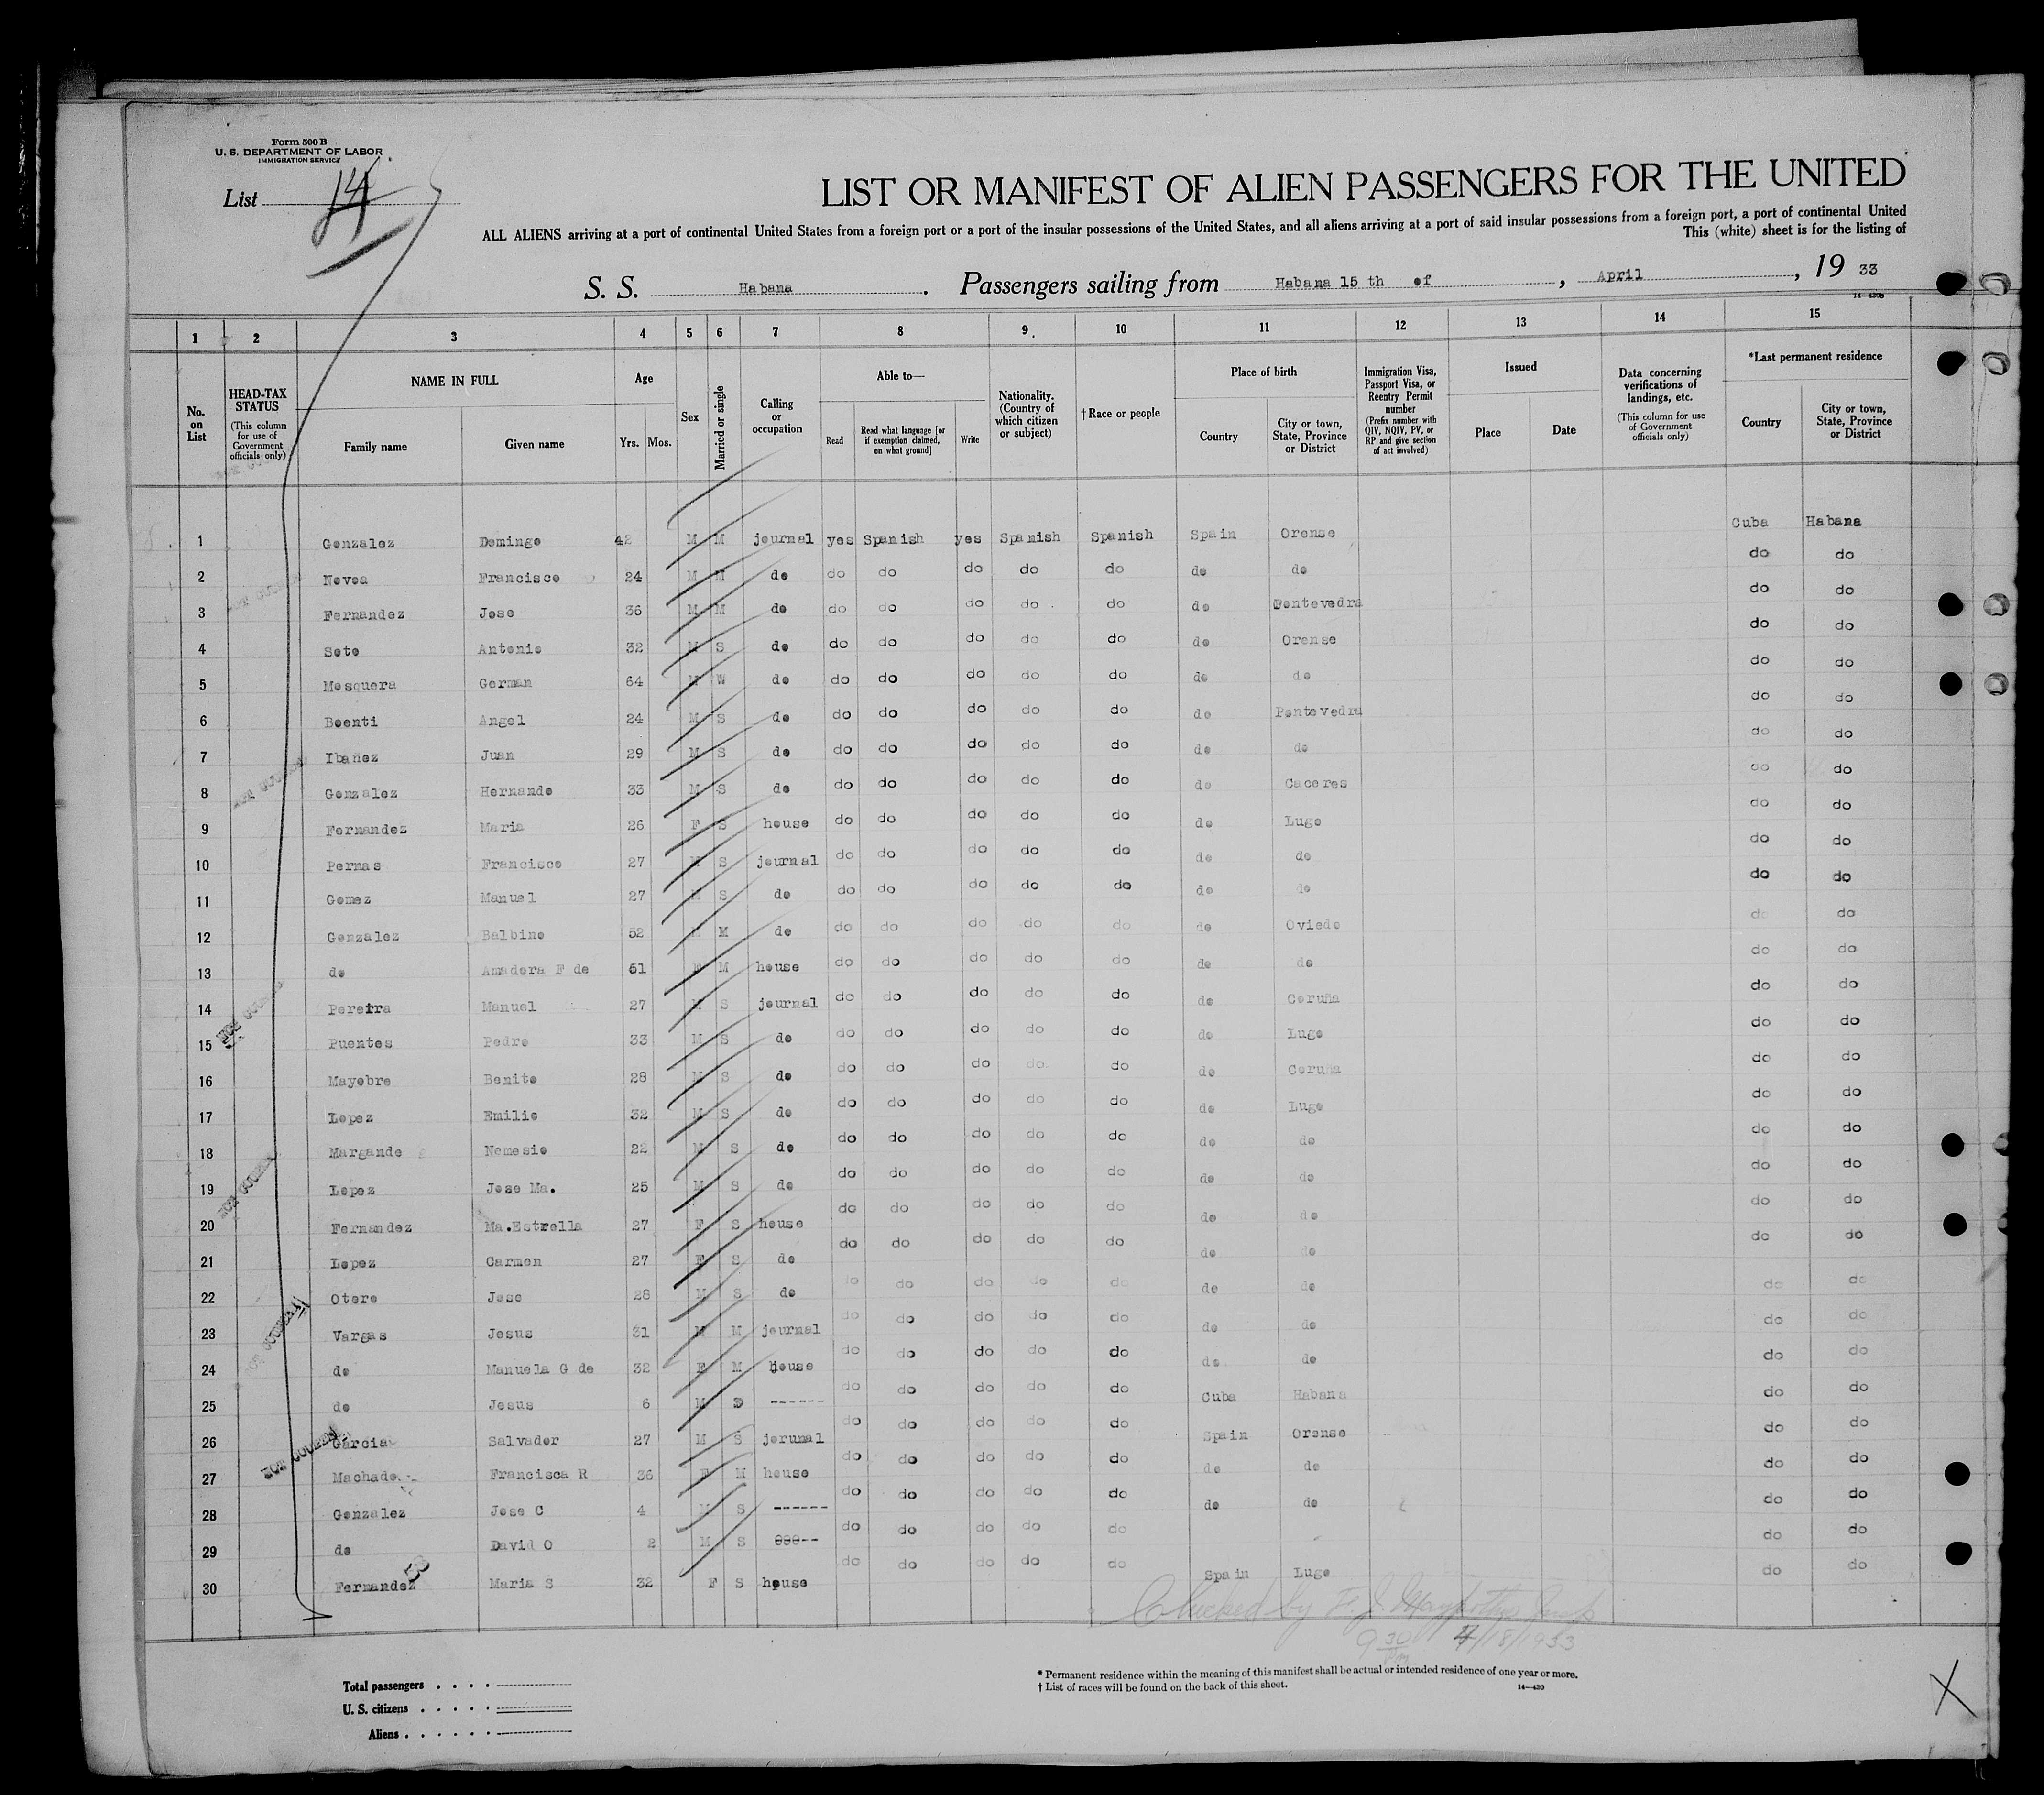 Form 500 B
U. S. DEPARTMENT OF LABOR
IMMIGRATION SERVICE
List 14
LIST OR MANIFEST OF ALIEN PASSENGERS FOR THE UNITED
ALL ALIENS arriving at a port of continental United States from a foreign port or a port of the insular possessions of the United States, and all aliens arriving at a port of said insular possessions from a foreign port, a port of continental United
This (white) sheet is for the listing of
S. S. Habana. Passengers sailing from Habana 15 th of, April, 19 33
14—430B
1 2 3 4 5 6 7 8 9. 10 11 12 13 14 15
No. on List
HEAD-TAX STATUS (This column for use of Government officials only)
NAME IN FULL Family name Given name
Age Yrs. Mos.
Sex
Married or single
Calling or occupation
Able to— Read Read what language [or if exemption claimed, on what ground] Write
Nationality. (Country of which citizen or subject)
†Race or people
Place of birth Country City or town, State, Province or District
Immigration Visa, Passport Visa, or Reentry Permit number (Prefix number with QIV, NQIV, PV, or RP and give section of act involved)
Issued Place Date
Data concerning verifications of landings, etc. (This column for use of Government officials only)
*Last permanent residence Country City or town, State, Province or District
1 Gonzalez Domingo 42 M M journal yes Spanish yes Spanish Spanish Spain Orense Cuba Habana
2 Novoa Francisco 24 M M do do do do do do do do do do
3 Fernandez Jose 36 M M do do do do do do do Pontevedra do do
4 Soto Antonio 32 M S do do do do do do do Orense do do
5 Mosquera German 64 M W do do do do do do do do do do
6 Boenti Angel 24 M S do do do do do do do Pontevedra do do
7 Ibanez Juan 29 M S do do do do do do do do do do
8 Gonzalez Hernando 33 M S do do do do do do do Caceres do do
9 Fernandez Maria 26 F S house do do do do do do Lugo do do
10 Pernas Francisco 27 M S journal do do do do do do do do do
11 Gomez Manuel 27 M S do do do do do do do do do do
12 Gonzalez Balbino 52 M M do do do do do do do Oviedo do do
13 do Amadora F de 51 F M house do do do do do do do do do
14 Pereira Manuel 27 M S journal do do do do do do Coruña do do
15 Puentes Pedro 33 M S do do do do do do do Lugo do do
16 Mayobre Benito 28 M S do do do do do do do Coruña do do
17 Lopez Emilio 32 M S do do do do do do do Lugo do do
18 Margando Nemesio 22 M S do do do do do do do do do do
19 Lopez Jose Ma. 25 M S do do do do do do do do do do
20 Fernandez Ma.Estrella 27 F S house do do do do do do do do do
21 Lopez Carmen 27 F S do do do do do do do do do do
22 Otero Jose 28 M S do do do do do do do do do do
23 Vargas Jesus 31 M M journal do do do do do do do do do
24 do Manuela G de 32 F M house do do do do do do do do do
25 do Jesus 6 M D ------ do do do do do Cuba Habana do do
26 Garcia Salvador 27 M S jorunal do do do do do Spain Orense do do
27 Machado Francisca R 36 F M house do do do do do do do do do
28 Gonzalez Jose C 4 M S ------ do do do do do do do do do
29 do David O 2 M S 000-- do do do do do do do
30 Fernandez Maria S 32 F S house do do do do do Spain Lugo do do
Checked by
9 30 4/18/1933
Total passengers
U. S. citizens
Aliens
* Permanent residence within the meaning of this manifest shall be actual or intended residence of one year or more.
† List of races will be found on the back of this sheet.
14—430
X